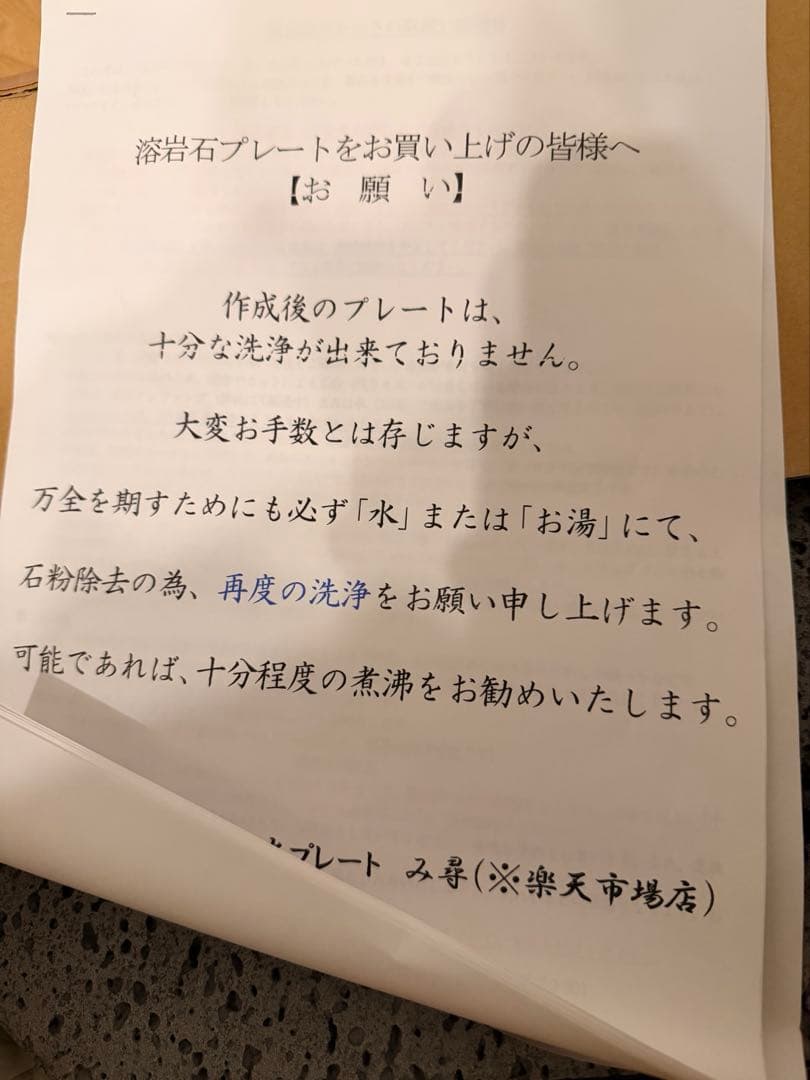 溶岩石プレートをお買い上げの皆様へ
【お　願　い】
作成後のプレートは、
十分な洗浄が出来ておりません。
大変お手数とは存じますが、
万全を期すためにも必ず「水」または「お湯」にて、
石粉除去の為、再度の洗浄をお願い申し上げます。
可能であれば、十分程度の煮沸をお勧めいたします。
プレート　み尋(※楽天市場店)